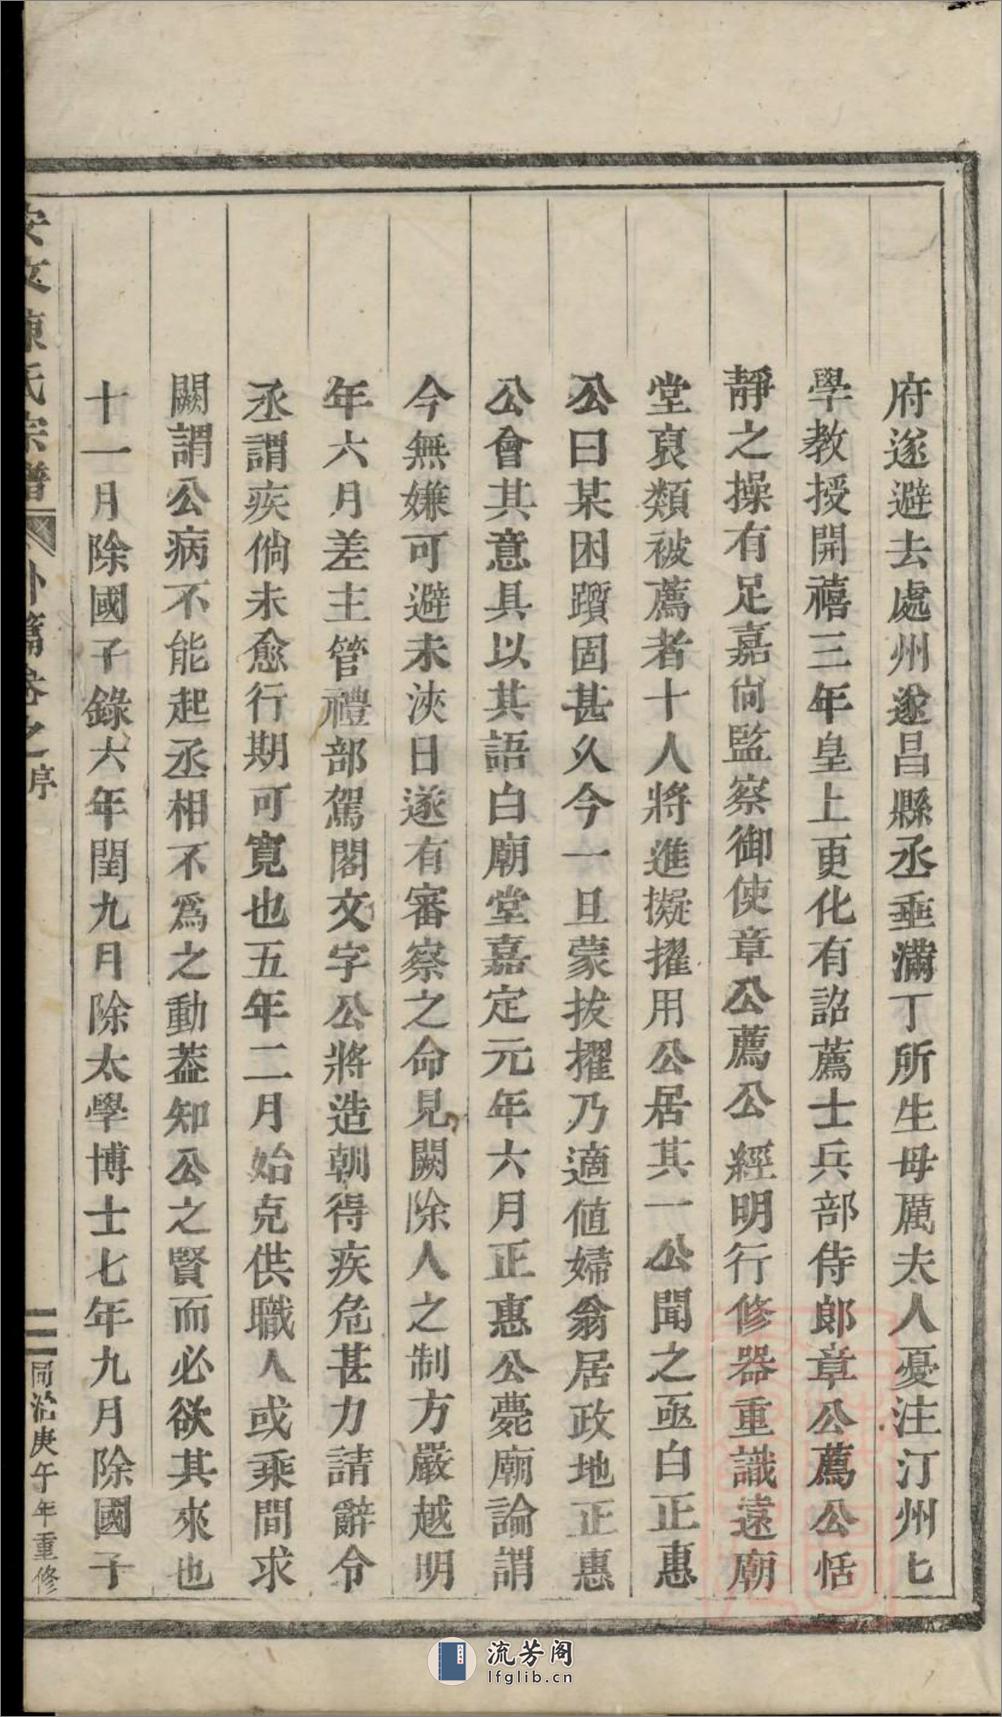 府遂避去處州遂昌縣丞垂滿丁所生母厲太人憂注汀州匕
學教授開禧三年皇上更化有詔薦士兵部侍郎章公薦公恬
靜之操有足嘉尙監察御使章公薦公經明行修器重識遠廟
堂裒類被薦者十人將進擬擢用公居其一公聞之亟白正惠
公曰某困躓固甚久今一旦蒙拔擢乃適値婦翁居政地正惠
公會其意具以其語白廟堂嘉定元年六月正惠公薨廟論謂
今無嫌可避未浹日遂有審察之命見闕除人之制方嚴越明
年六月差主管禮部駕閣文字公將造朝得疾危甚力請辭令
丞謂疾倘未愈行期可寬也五年二月始克供職人或乘間求
闕謂公病不能起丞相不爲之動葢知公之賢而必欲其來也
十一月除國子錄六年閏九月除太學博士七年九月除國子
安文陳氏宗譜 外篇卷之序 二 同治庚午年重修
流芳阁
lfglib.cn